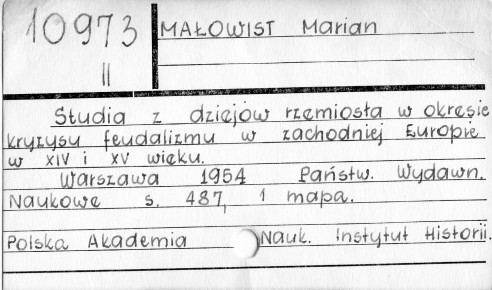 10973
II
MAŁOWIST Marian
Studia z dziejów rzemiosła w okresie
kryzysu feudalizmu w zachodniej Europie
w XIV i XV wieku.
Warszawa 1954 Państw. Wydawn.
Naukowe s. 487, 1 mapa.
Polska Akademia Nauk. Instytut Historii.